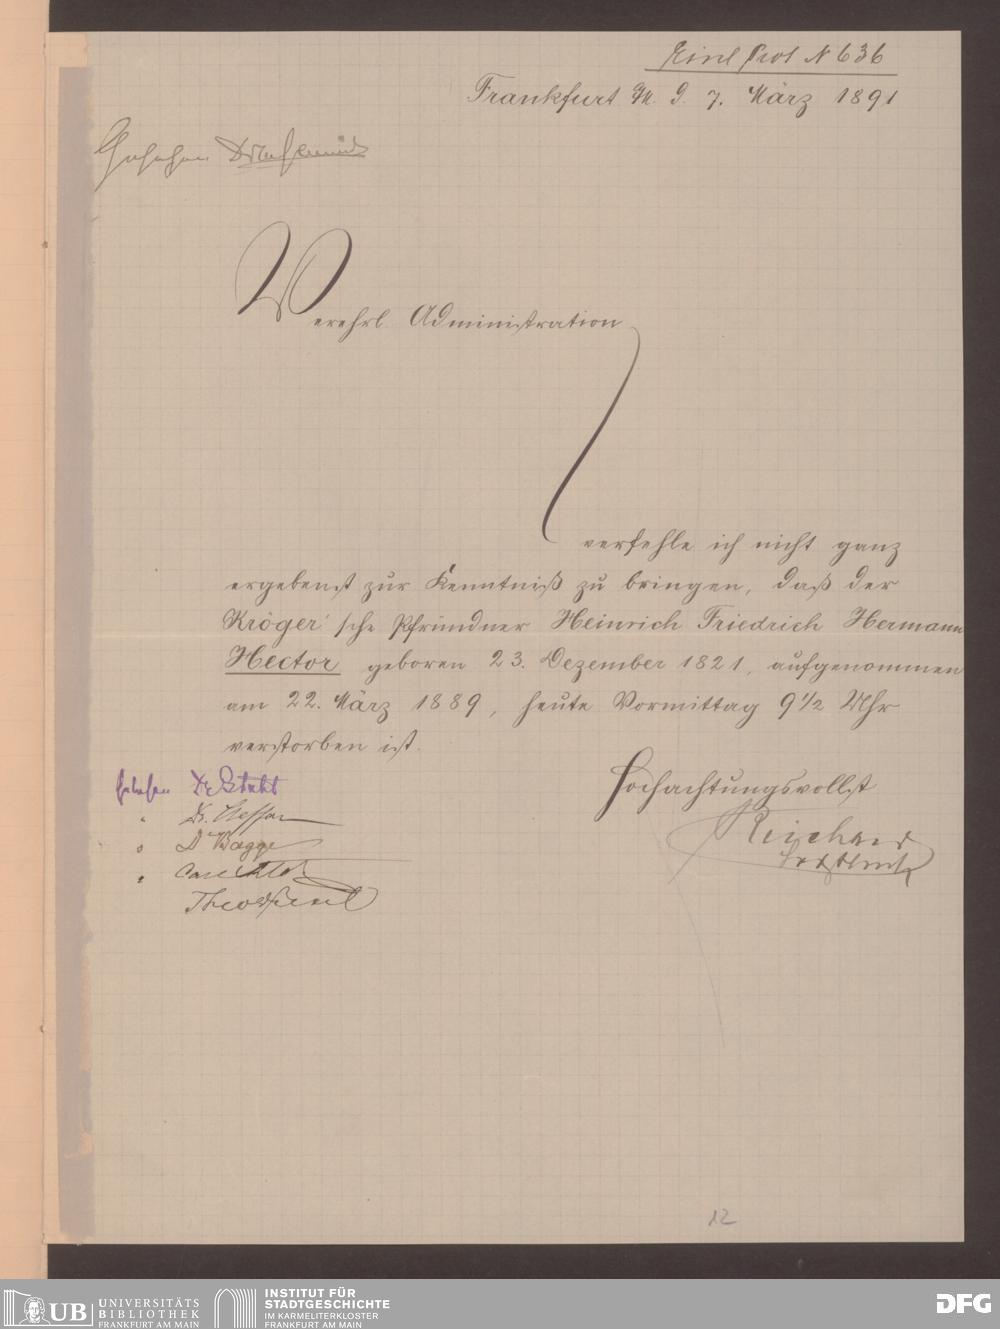 Einl Prot N 636
Frankfurt M. d. 7. März 1891
Gesehen
Verehrl. Administration
verfehle ich nicht ganz
ergebenst zur Kenntniß zu bringen, daß der
Kröger'sche Pfründner Heinrich Friedrich Hermann
Hector geboren 23. Dezember 1821, aufgenommen
am 22. März 1889, heute Vormittag 9 1/2 Uhr
verstorben ist.
Hochachtungsvollst
Gelesen
Dr.
Dr Bagge
Carl
Theod
12
UB UNIVERSITÄTS
BIBLIOTHEK
FRANKFURT AM MAIN
INSTITUT FÜR
STADTGESCHICHTE
IM KARMELITERKLOSTER
FRANKFURT AM MAIN
DFG